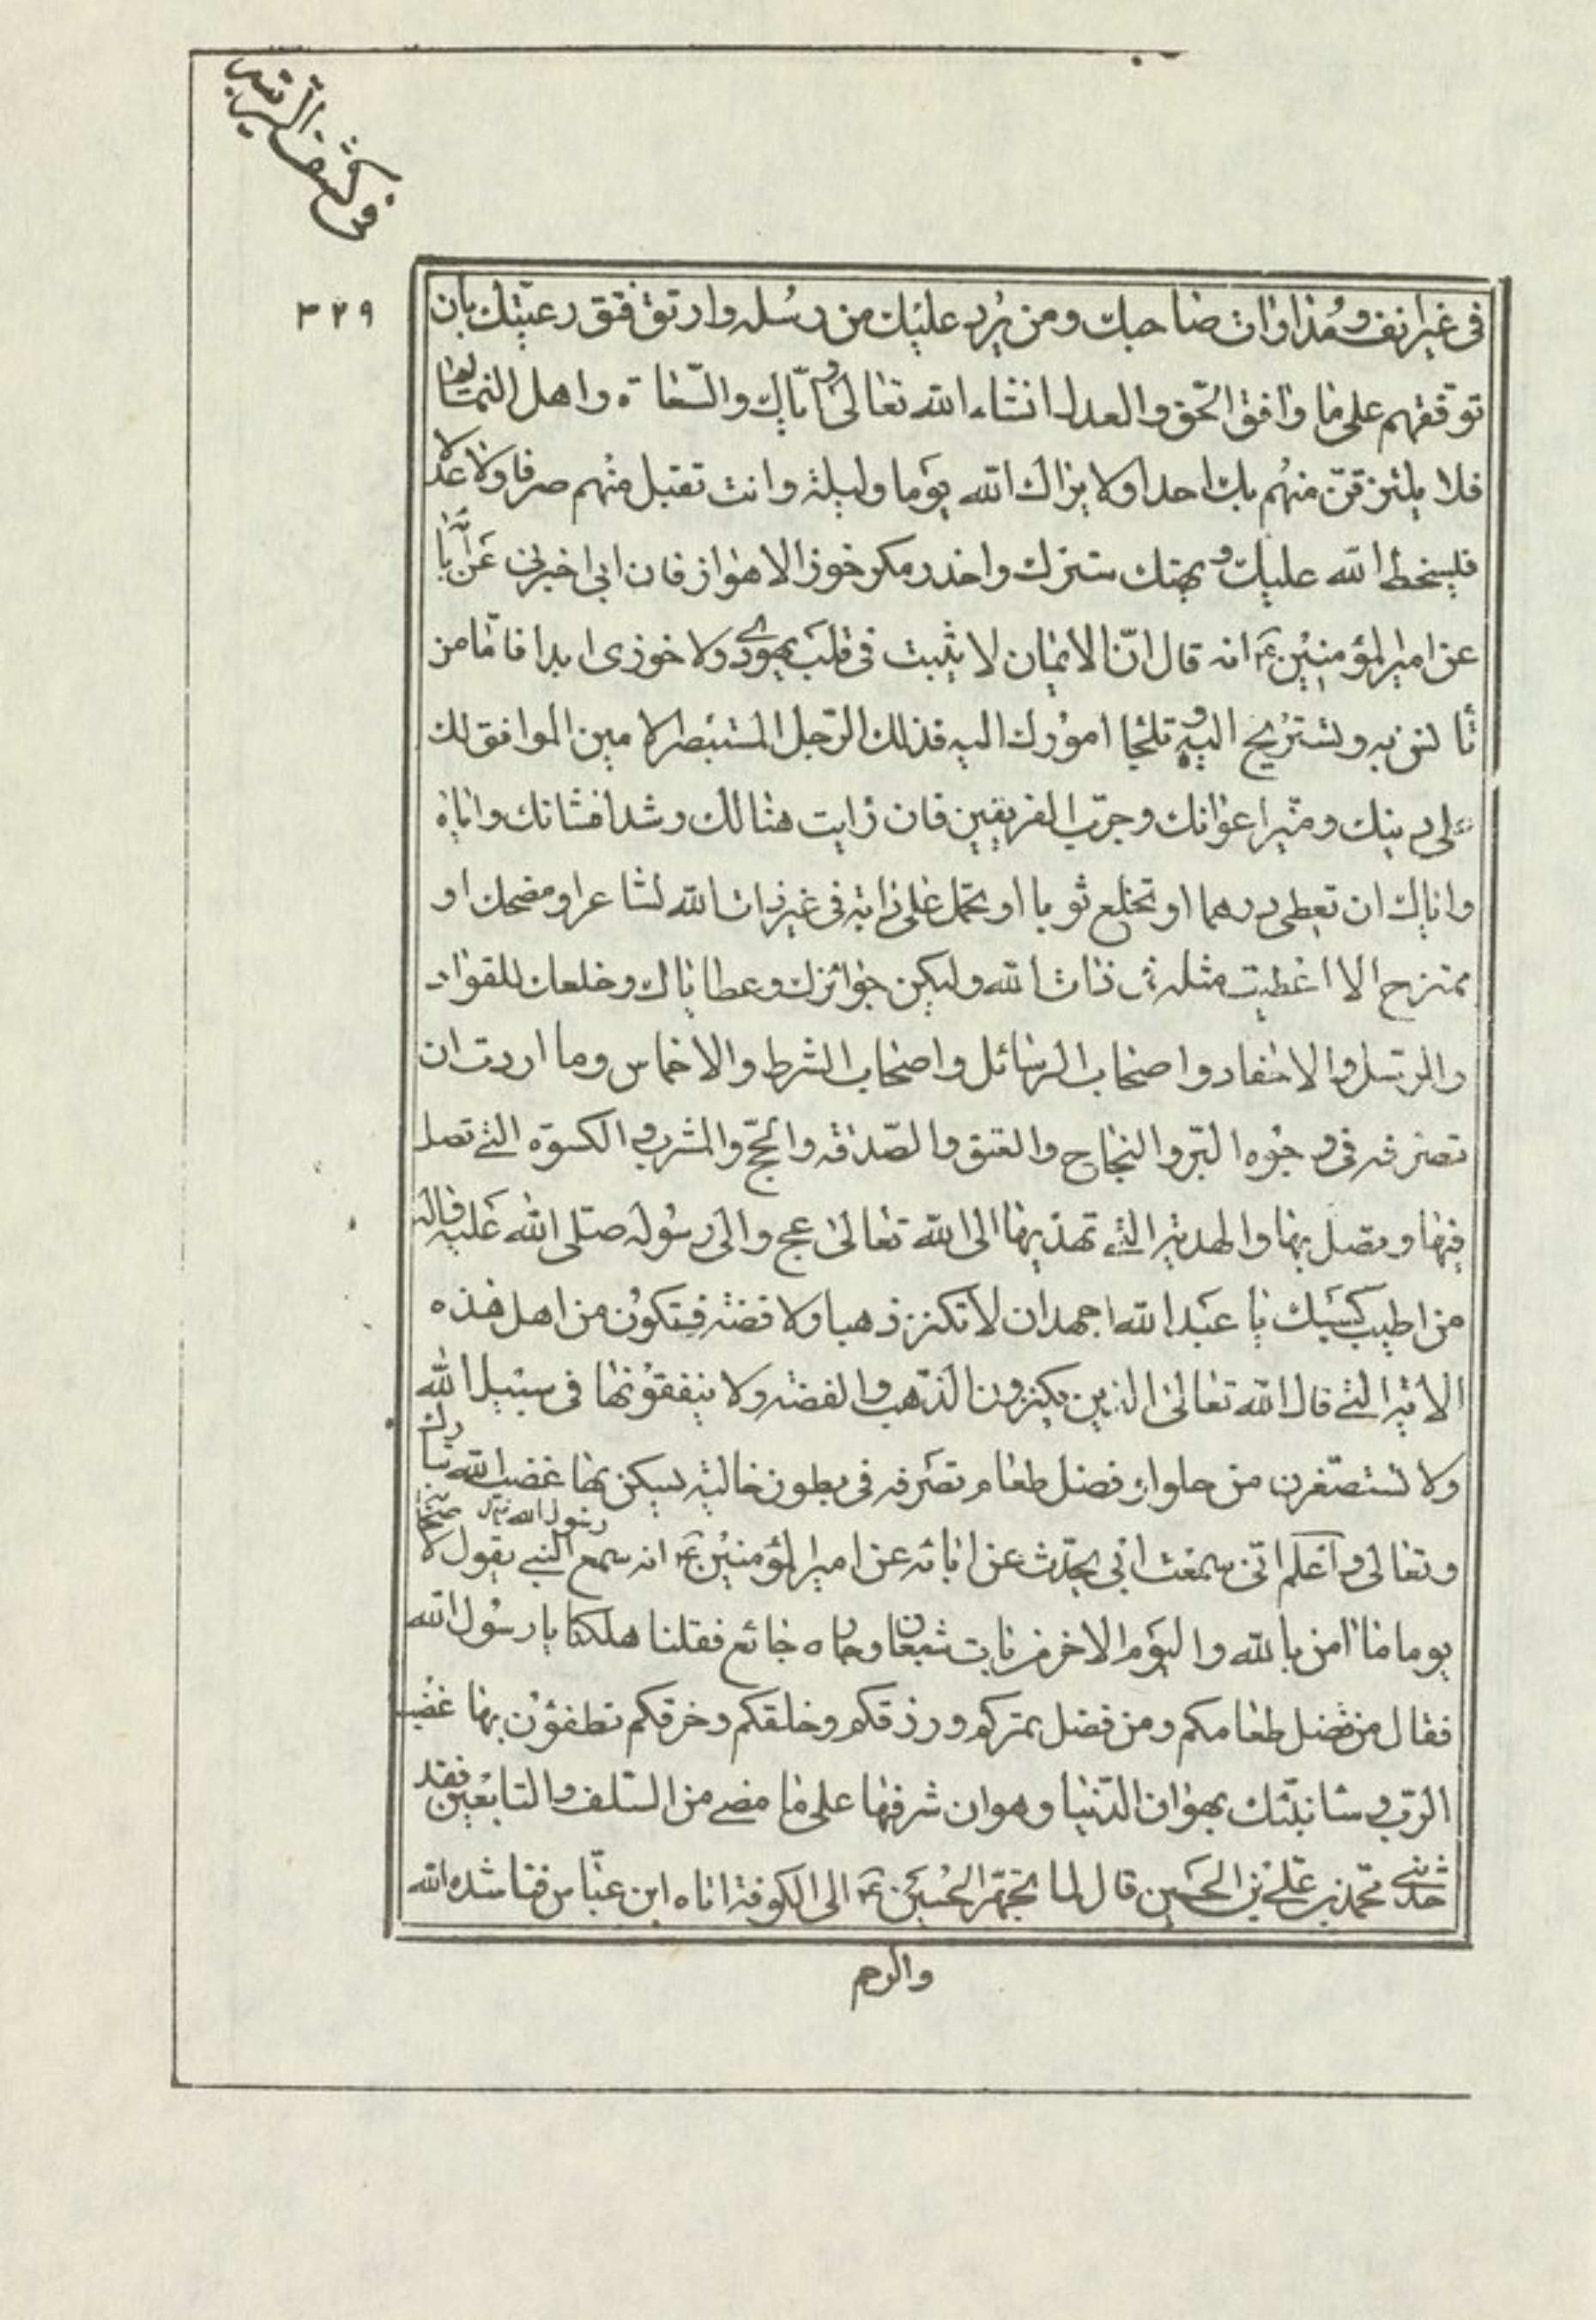 في كشف الريبة
٣٢٩
في غير انف ومداوات صاحبك ومن يرد عليك من رسله وارتق فتق رعيتك بان
توقفهم على ما وافق الحق والعدل انشاء الله تعالى واياك والسعاة واهل النمائم
فلا يلتزقن منهم بك احد اولا يراك الله يوما وليلة وانت تقبل منهم صرفا ولا عدلا
فليسخط الله عليك ويهتك سترك واحذر مكر خوز الاهواز فان ابي اخبرني عن آبائه
عن امير المؤمنين ع انه قال ان الايمان لا يثبت في قلب يهودي ولا خوزى ابدا فاما من
تأنس به وتستريح اليه وتلجئا امورك اليه فذلك الرجل المستبصر الامين الموافق لك
على دينك وميّز اعوانك وجرّب الفريقين فان رايت هنالك رشدا فشانك واياه
واياك ان تعطى درهما او تخلع ثوبا او تحمل على دابة في غير ذات الله لشاعر او مضحك او
ممتزح الا اعطيت مثله في ذات الله وليكن جوائزك وعطاياك وخلعك للقواد
والرسل والاحفاد واصحاب الرسائل واصحاب الشرط والاخماس وما اردت ان
تصرفه في وجوه البر والنجاح والعتق والصدقة والحج والمشرب والكسوة التي تصلى
فيها وتصل بها والهدية التي تهديها الى الله تعالى عج والى رسوله صلى الله عليه واله
من اطيب كسبك يا عبد الله اجهد ان لا تكنز ذهبا ولا فضة فتكون من اهل هذه
الاية التي قال الله تعالى الذين يكنزون الذهب والفضة ولا ينفقونها في سبيل الله
ولا تستصغرن من حلو او فضل طعام تصرفه في بطون خالية يسكن بها غضب الله تبارك
وتعالى واعلم اني سمعت ابي يحدث عن ابائه عن امير المؤمنين ع انه سمع النبي يقول لاصحابه
رسول الله
يوما ما امن بالله واليوم الاخر من بات شبعان وجاره جائع فقلنا هلكنا يا رسول الله
فقال من فضل طعامكم ومن فضل تمركم ورزقكم وخلقكم وخرقكم تطفؤن بها غضب
الرب وسانبئك بهوان الدنيا وهوان شرفها على ما مضى من السلف والتابعين فقد
حدثني محمد بن علي بن الحسين قال لما تجهز الحسين ع الى الكوفة اتاه ابن عباس فناشده الله
والرحم